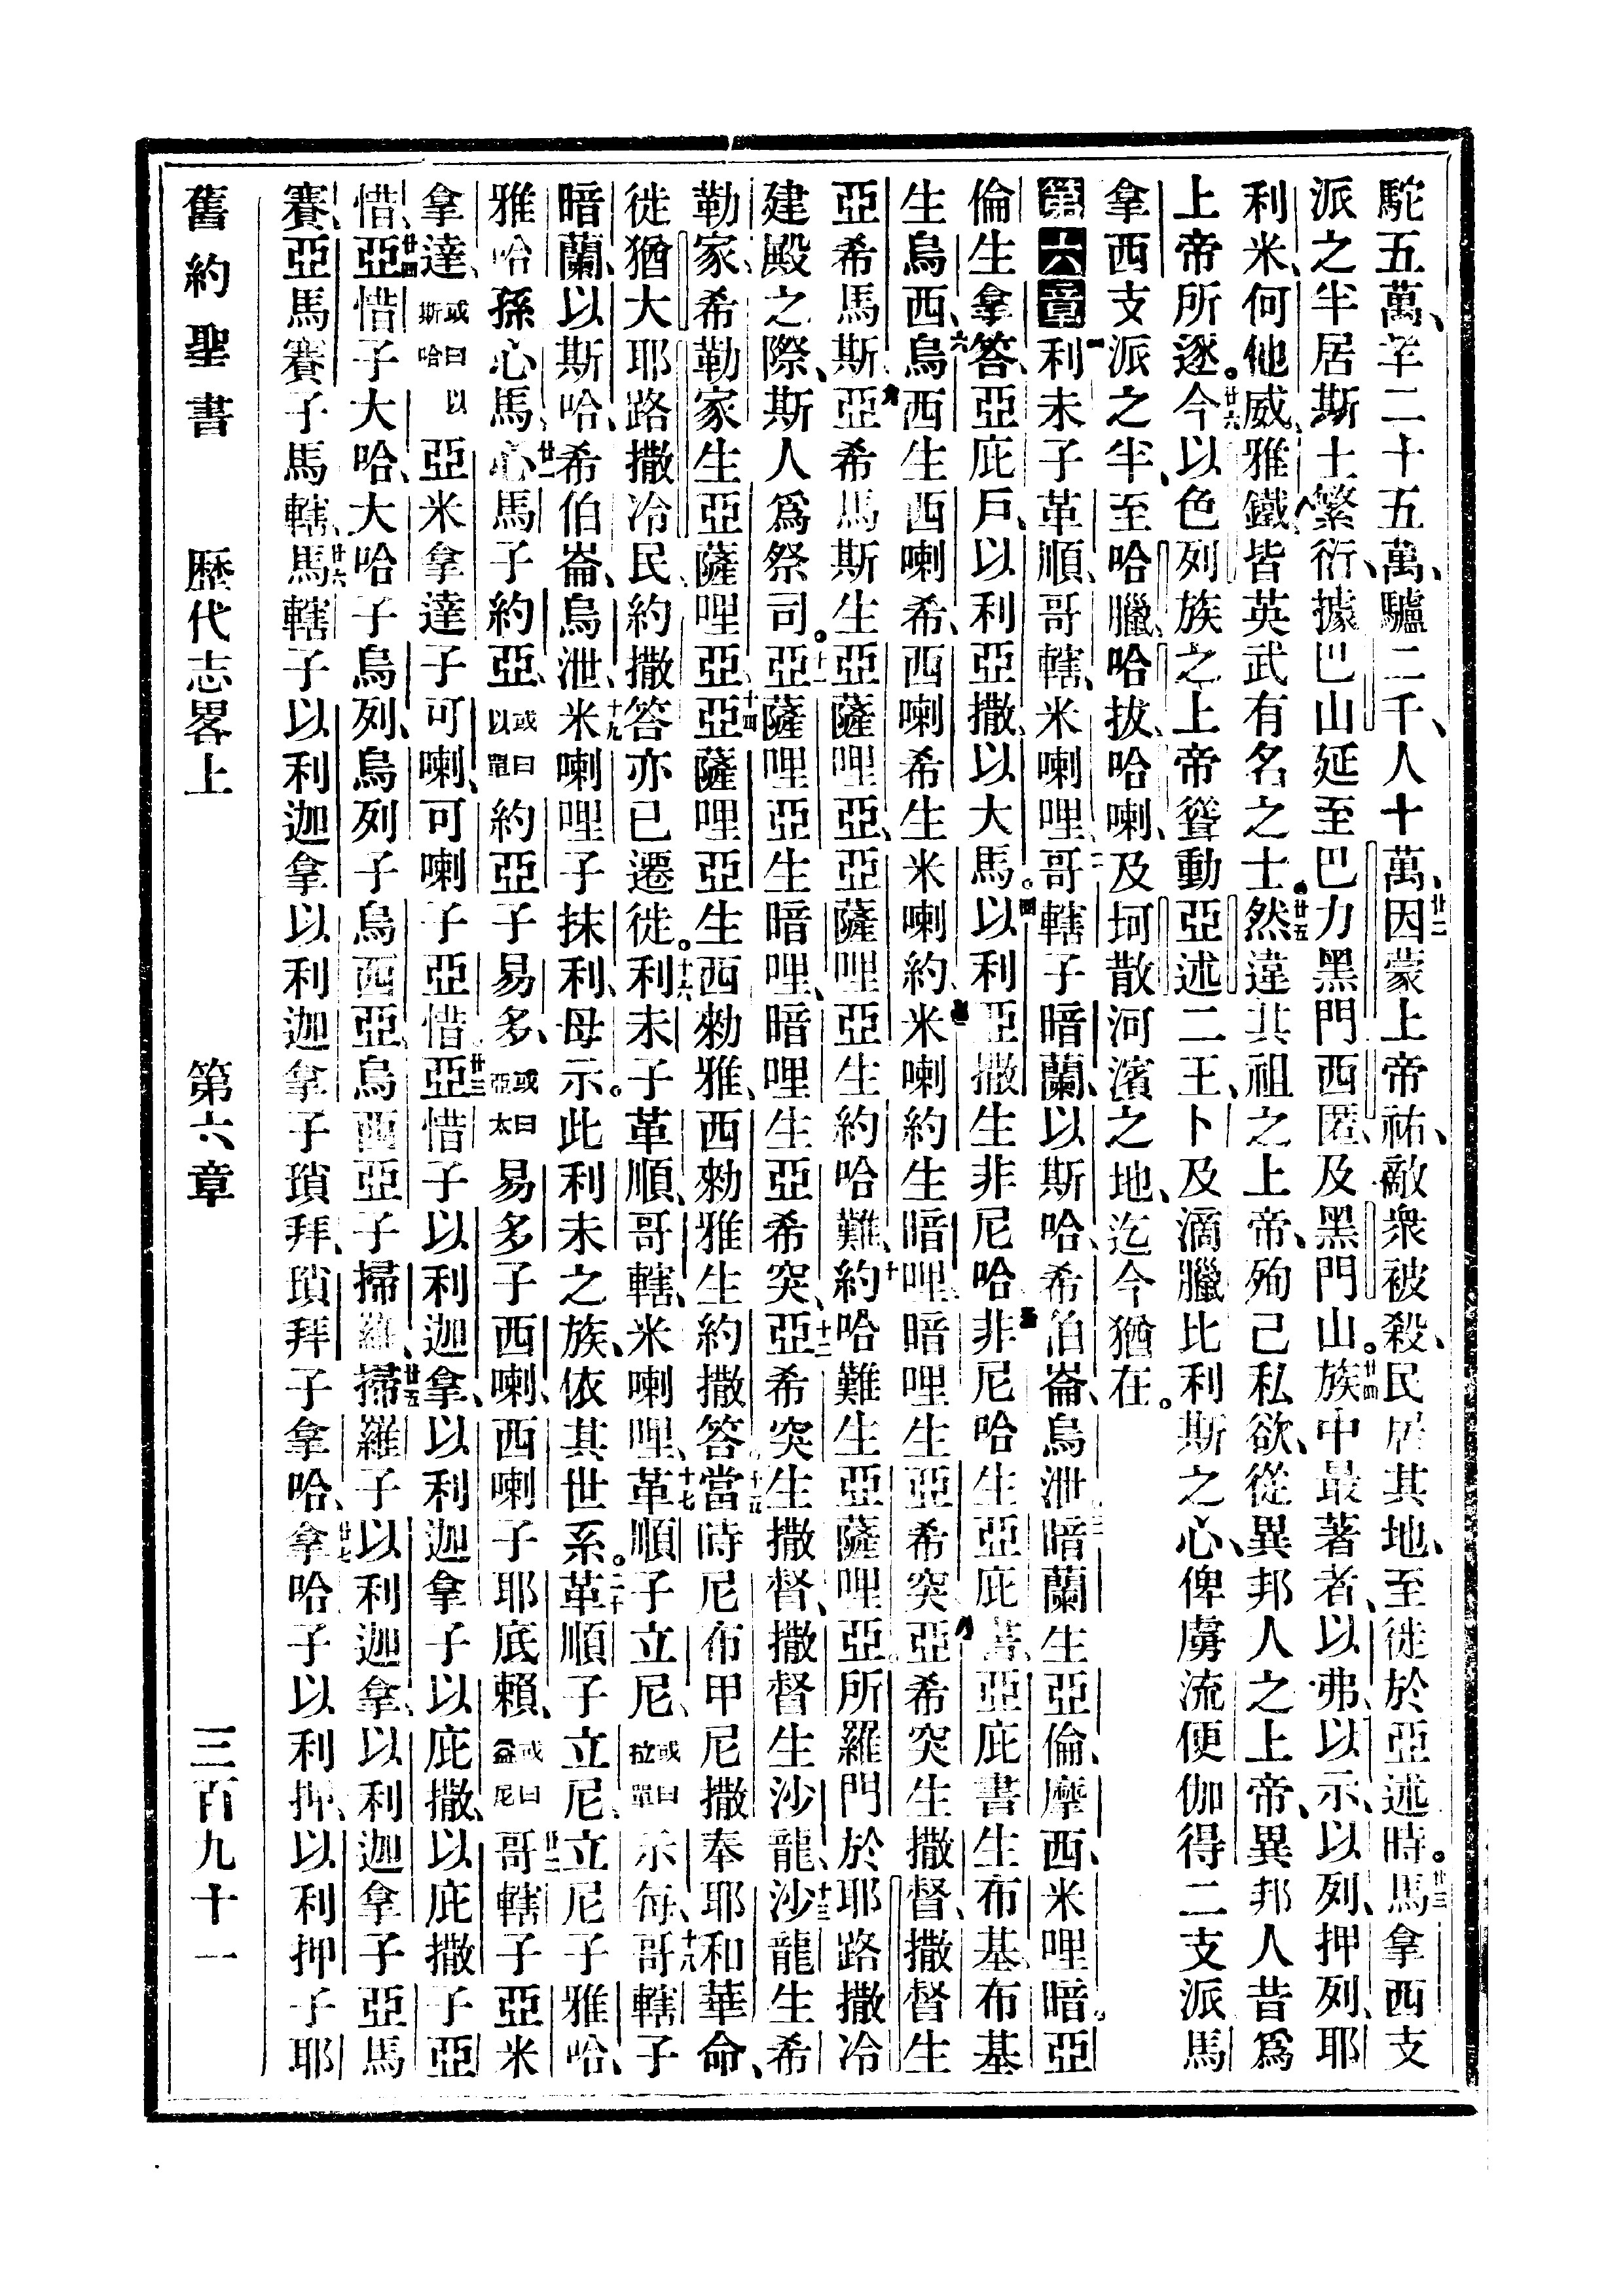 駝五萬、羊二十五萬、驢二千、人十萬、廿二因蒙上帝祐、敵衆被殺、民居其地、至徙於亞述時。廿三馬拿西支
派之半居斯土、繁衍、據巴山延至巴力黑門西匿、及黑門山。廿四族中最著者、以弗、以示、以列、押列、耶
利米、何他威、雅鐵、皆英武有名之士。廿五然違其祖之上帝、殉己私欲、從異邦人之上帝、異邦人昔爲
上帝所逐。廿六今以色列族之上帝聳動亞述二王、卜及滴臘比利斯之心、俾虜流便伽得二支派馬
拿西支派之半、至哈臘、哈拔、哈喇、及坷散河濱之地、迄今猶在。
第六章一利未子革順、哥轄、米喇哩、二哥轄子暗蘭、以斯哈、希伯崙、烏泄、三暗蘭生亞倫、摩西、米哩暗。亞
倫生拿答、亞庇戶、以利亞撒、以大馬。四以利亞撒生非尼哈、非尼哈生亞庇書、五亞庇書生布基、布基
生烏西、六烏西生西喇希、西喇希生米喇約、七米喇約生暗哩、暗哩生亞希突、八亞希突生撒督、撒督生
亞希馬斯、九亞希馬斯生亞薩哩亞、亞薩哩亞生約哈難、十約哈難生亞薩哩亞。所羅門於耶路撒冷
建殿之際、斯人爲祭司。十一亞薩哩亞生暗哩、暗哩生亞希突、十二亞希突生撒督、撒督生沙龍、十三沙龍生希
勒家、希勒家生亞薩哩亞、十四亞薩哩亞生西勑雅、西勑雅生約撒答。十五當時尼布甲尼撒奉耶和華命、
徙猶大耶路撒冷民、約撒答亦已遷徙。十六利未子革順、哥轄、米喇哩、十七革順子立尼、或曰立單示每、十八哥轄子
暗蘭、以斯哈、希伯崙、烏泄、十九米喇哩子抹利、母示。此利未之族、依其世系。二十革順子立尼、立尼子雅哈、
雅哈孫心馬、廿一心馬子約亞、或曰以單約亞子易多、或曰亞太易多子西喇、西喇子耶底賴、或曰益尼廿二哥轄子亞米
拿達、或曰以斯哈亞米拿達子可喇、可喇子亞惜、廿三亞惜子以利迦拿、以利迦拿子以庇撒、以庇撒子亞
惜、廿四亞惜子大哈、大哈子烏列、烏列子烏西亞、烏西亞子掃羅、廿五掃羅子以利迦拿、以利迦拿子亞馬
賽、亞馬賽子馬轄、廿六馬轄子以利迦拿、以利迦拿子瑣拜、瑣拜子拿哈、廿七拿哈子以利押、以利押子耶
舊約聖書 歷代志畧上 第六章 三百九十一